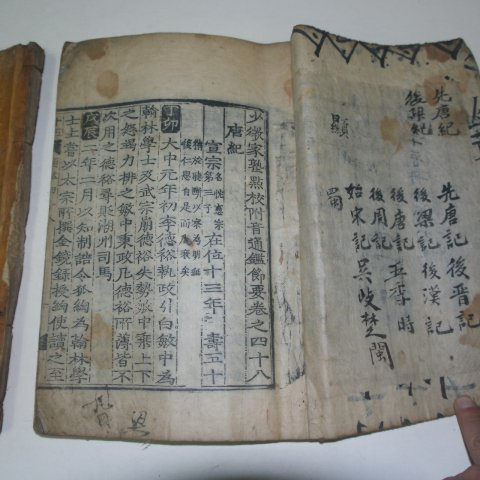 先唐紀
先唐記 後晋記
後梁記 後漢記
後唐記 五季 時
後周記
始宋記 吳岐楚閩
蜀
顯
少微家塾點校附音通鑑節要卷之四十八
唐紀
宣宗 名忱憲宗第三子 在位十三年 壽五十
丁卯 大中元年初李德裕執政引白敏中爲
翰林學士及武宗崩德裕失勢敏中乘上下
之怒竭力排之敏中秉政凡德裕所薄皆不
次用之德裕尋貶潮州司馬
戊辰 二年二月以知制誥令狐綯爲翰林學
士上嘗以太宗所撰金鏡錄授綯使讀之至